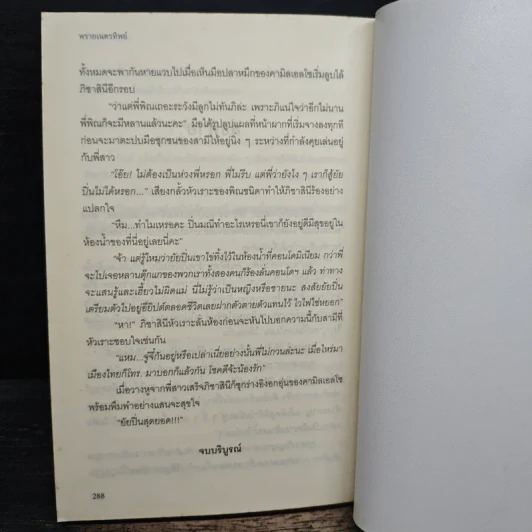 พรายเนตรทิพย์
ทั้งหมดจะพากันหายแวบไปเมื่อเห็นมือปลาหมึกของคามิลเอลโซเริ่มลูบไล้
ภิชาสินีอีกรอบ
"ว่าแต่พี่พิณเถอะระวังมีลูกไม่ทันภิล่ะ เพราะภิแน่ใจว่าอีกไม่นาน
พี่พิณก็จะมีหลานแล้วนะคะ" มือได้รูปลูบแผลที่หน้าผากที่เริ่มจางลงทุกที
ก่อนจะมาตะปบมือซุกซนของสามีให้อยู่นิ่ง ๆ ระหว่างที่กำลังคุยเล่นอยู่
กับพี่สาว
"โอ๊ย! ไม่ต้องเป็นห่วงพี่หรอก พี่ไม่รีบ แต่พี่ว่ายังไง ๆ เราก็สู้ยัย
ปิ่นไม่ได้หรอก..." เสียงกลั้วหัวเราะของพิณชนิดาทำให้ภิชาสินีร้องอย่าง
แปลกใจ
"หืม...ทำไมเหรอคะ ปิ่นมณีทำอะไรเหรอนี่เขาก็ยังอยู่ดีมีสุขอยู่ใน
ห้องน้ำของที่นี่อยู่เลยนี่คะ"
"จ้า แต่รู้ไหมว่ายัยปิ่นเขาไข่ทิ้งไว้ในห้องน้ำที่คอนโดมิเนียม กว่าพี่
จะไปเจอหลานตุ๊กแกของพวกเราทั้งสองคนก็ร้องลั่นคอนโดฯ แล้ว ท่าทาง
จะแสนรู้และเฮี้ยวไม่ผิดแม่ นี่ไม่รู้ว่าเป็นหญิงหรือชายนะ สงสัยยัยปิ่น
เตรียมตัวไปอยู่อียิปต์ตลอดชีวิตเลยฝากตัวตายตัวแทนไว้ ไวไฟใช่หยอก"
"หา!" ภิชาสินีหัวเราะลั่นห้องก่อนจะหันไปบอกความนี้กับสามีที่
หัวเราะชอบใจเช่นกัน
"แหม...จู๋จี๋กันอยู่หรือเปล่าเนี่ยอย่างนั้นพี่ไม่กวนล่ะนะ เมื่อไหร่มา
เมืองไทยก็โทร. มาบอกก็แล้วกัน โชคดีจ้ะน้องรัก"
เมื่อวางหูจากพี่สาวเสร็จภิชาสินีก็ซุกร่างอิงอกอุ่นของคามิลเอลโซ
พร้อมพึมพำอย่างแสนจะสุขใจ
"ยัยปิ่นสุดยอด!!!"
จบบริบูรณ์
288